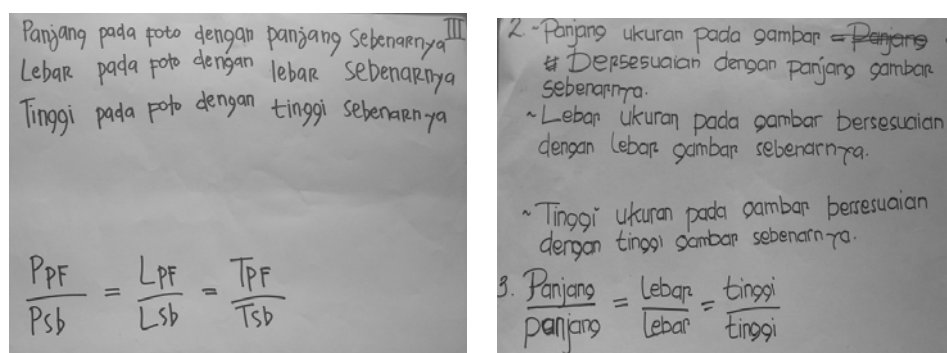 Panjang pada foto dengan panjang sebenarnya III
Lebar pada foto dengan lebar sebenarnya
Tinggi pada foto dengan tinggi sebenarnya
PPF/Psb = LPF/Lsb = TPF/Tsb
2. ~ Panjang ukuran pada gambar = Panjang
# Bersesuaian dengan panjang gambar
sebenarnya.
~ Lebar ukuran pada gambar bersesuaian
dengan lebar gambar sebenarnya.
~ Tinggi ukuran pada gambar bersesuaian
dengan tinggi gambar sebenarnya.
3. Panjang/panjang = lebar/lebar = tinggi/tinggi